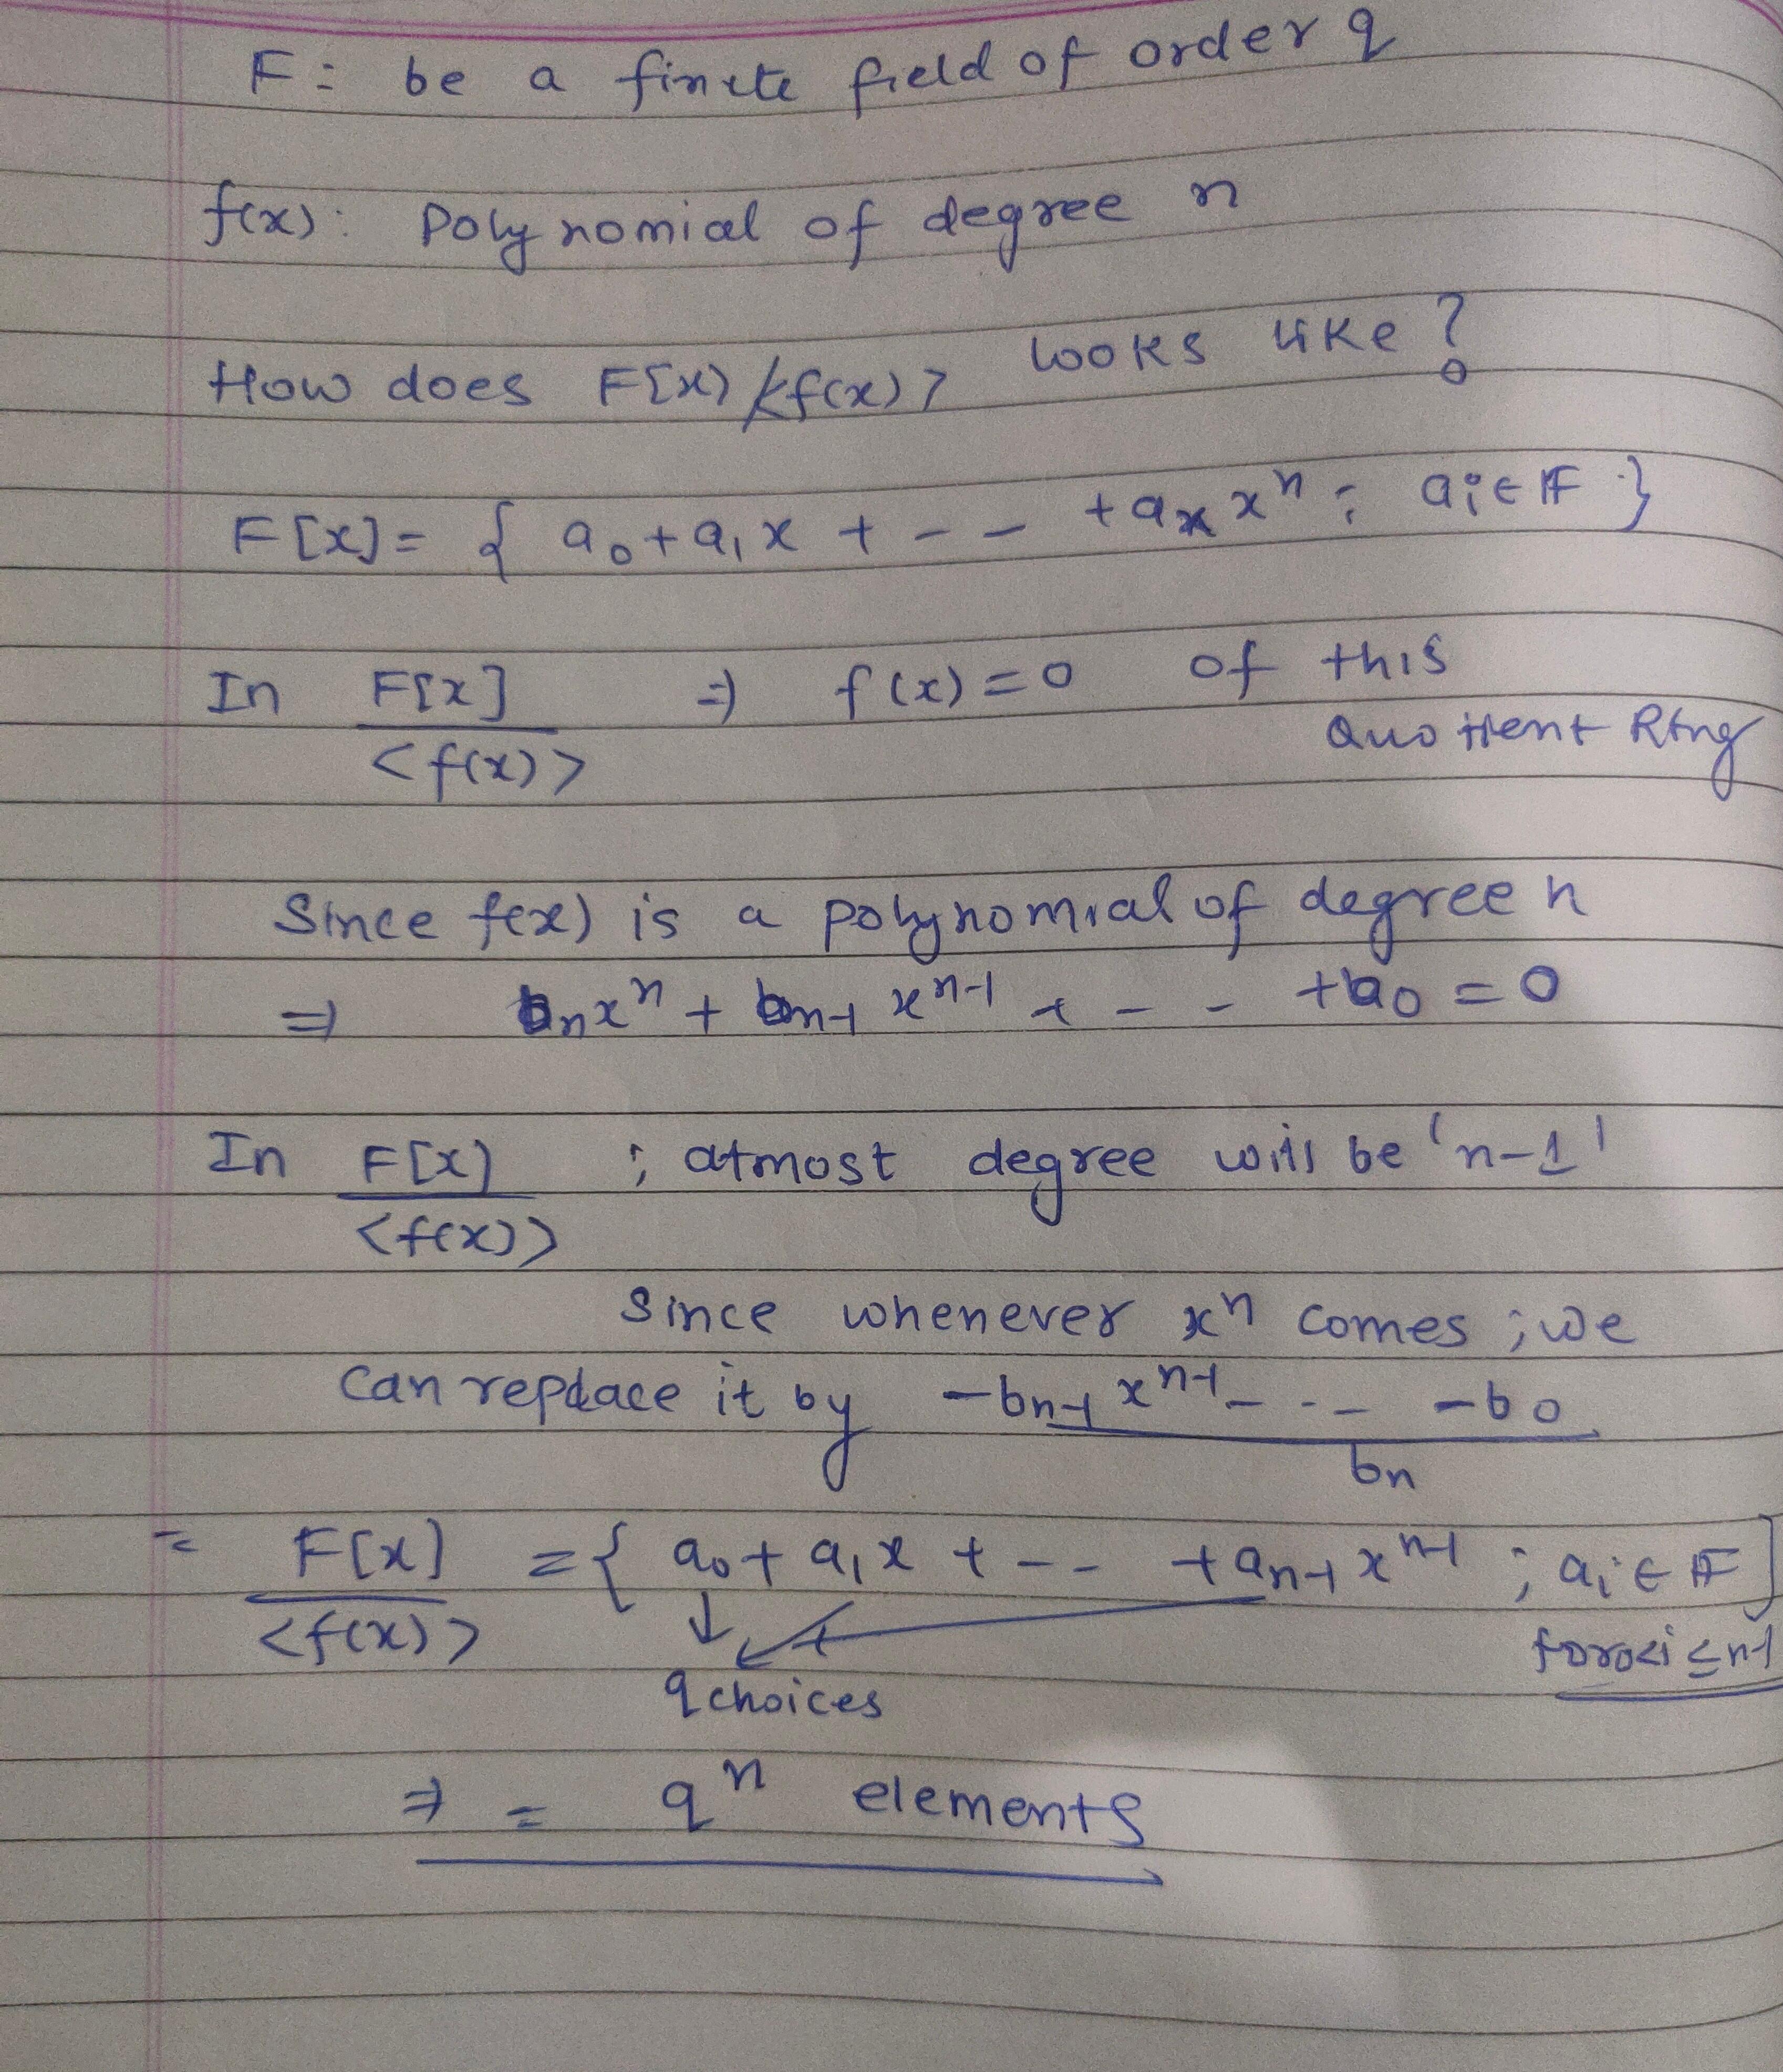 F: be a finite field of order q
f(x): Polynomial of degree n
How does F[x]/<f(x)> looks like?
F[x] = { a0 + a1x + - - + anx^n ; ai ∈ F }
In F[x] ⇒ f(x) = 0 of this
<f(x)> Quotient Ring
Since f(x) is a polynomial of degree n
⇒ bnx^n + bn-1 x^n-1 + - - + b0 = 0
In F[x] ; atmost degree will be 'n-1'
<f(x)>
Since whenever x^n comes ; we
can replace it by -bn-1 x^n-1 - - - - b0
bn
= F[x] = { a0 + a1x + - - + an-1 x^n-1 ; ai ∈ F }
<f(x)> for 0≤i≤n-1
q choices
⇒ = q^n elements